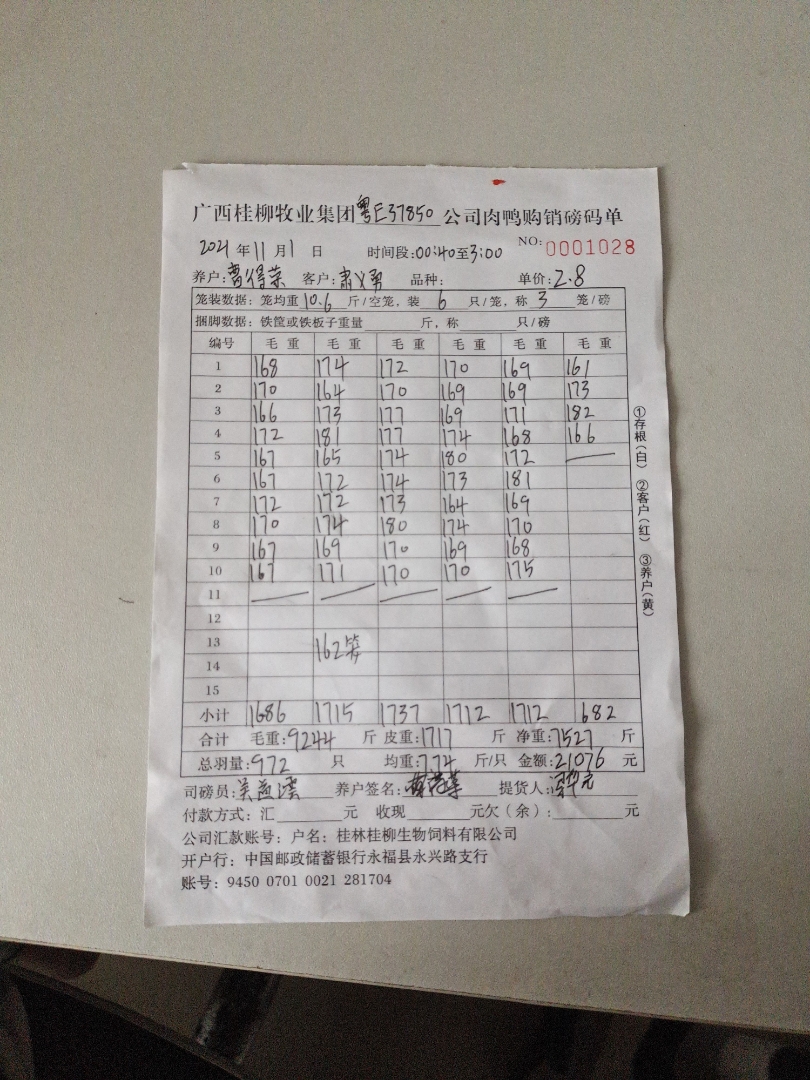 广西桂柳牧业集团粤E37850公司肉鸭购销磅码单
2021年11月1日 时间段:00:40至3:00 NO:0001028
养户:曹得荣 客户:肃义勇 品种: 单价:2.8
笼装数据:笼均重10.6斤/空笼,装6只/笼,称3笼/磅
捆脚数据:铁筐或铁板子重量 斤,称 只/磅
编号 毛重 毛重 毛重 毛重 毛重 毛重
1 168 174 172 170 169 161
2 170 164 170 169 169 173
3 166 173 177 169 171 182
4 172 181 177 174 168 166
5 167 165 174 180 172
6 167 172 174 173 181
7 172 172 173 164 169
8 170 174 180 174 170
9 167 169 170 169 168
10 167 171 170 170 175
11
12
13
162笼
14
15
小计 1686 1715 1737 1712 1712 682
合计 毛重:9244斤 皮重:1717斤 净重:7527斤
总羽量:972只 均重:7.74斤/只 金额:21076元
司磅员: 养户签名: 提货人:
付款方式:汇 元 收现 元欠(余): 元
公司汇款账号:户名:桂林桂柳生物饲料有限公司
开户行:中国邮政储蓄银行永福县永兴路支行
账号:9450 0701 0021 281704
①存根(白) ②客户(红) ③养户(黄)